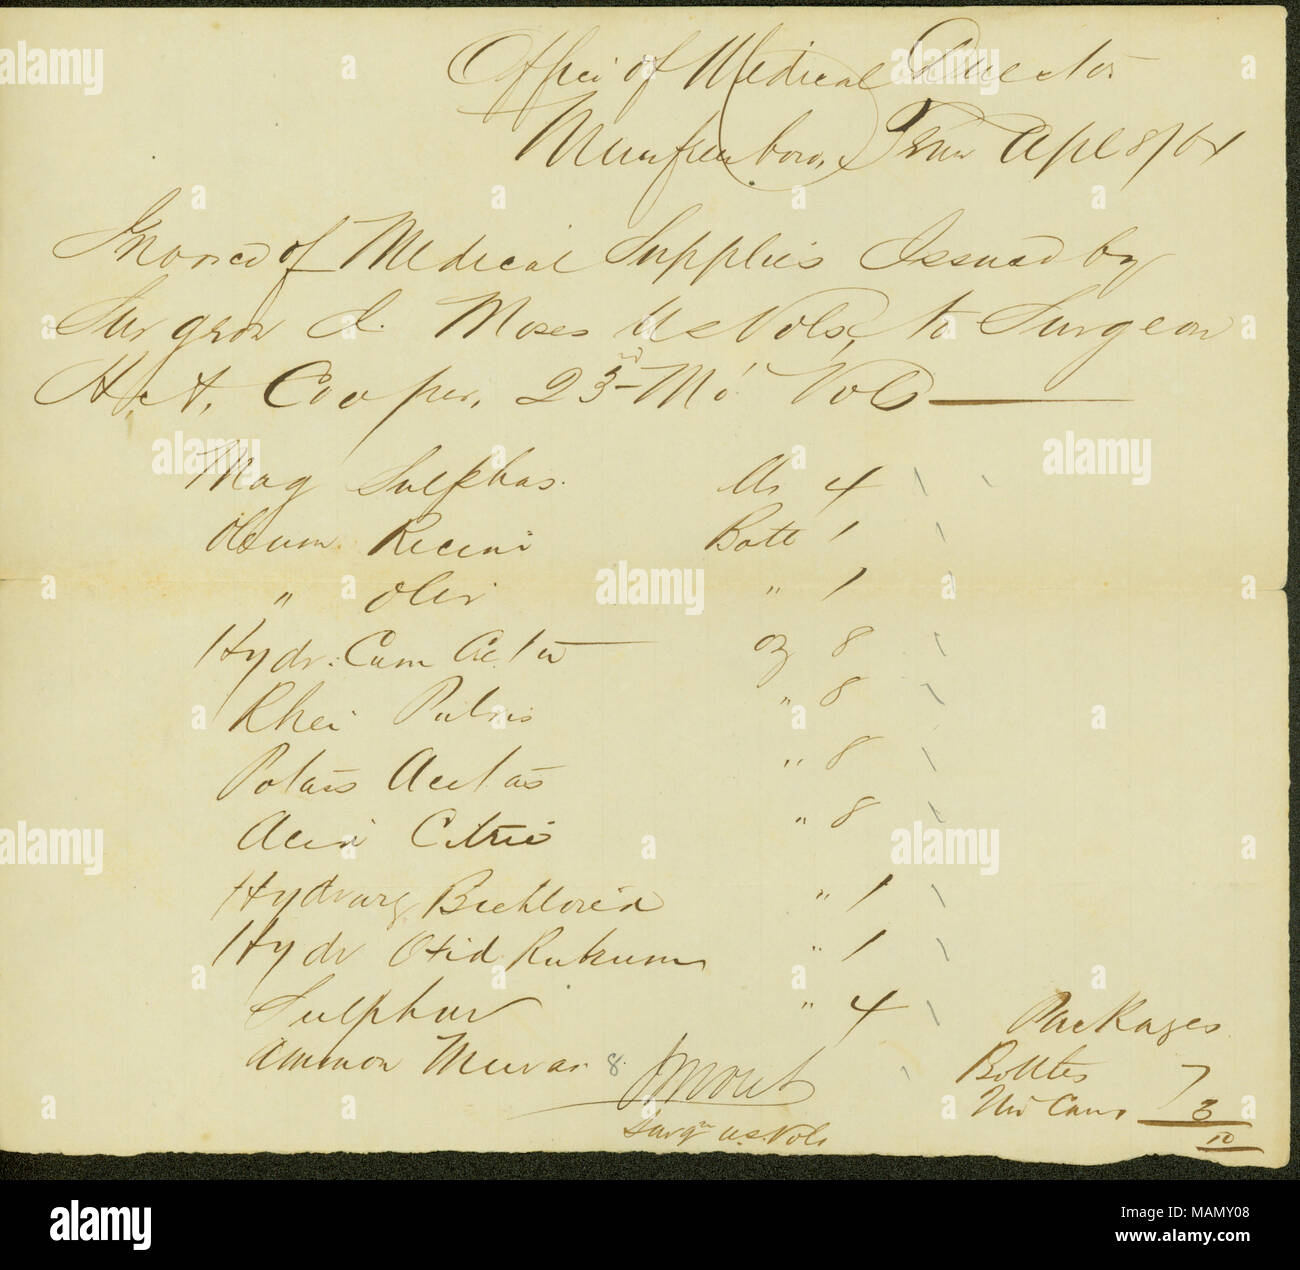 Office of Medical Director
Murfreesboro, Tenn Apl 8/64
Invoice of Medical Supplies Issued by
Surgeon I. Moses US Vols, to Surgeon
H.A. Cooper, 23rd Mo. Vols
Mag Sulphas. 4
Oleum Ricini Bott 1
" Oliv " 1
Hydr. Cum Creta oz 8
Rhei Pulvis " 8
Potass Acetas " 8
Acid Citric " 8
Hydrarg Bichlorid " 1
Hydr Oxid Rubrum " 1
Sulphur " 4
Ammon Murias 8
Surgn U.S. Vols
Packages
Bottles 7
Tin Cans 3
10
alamy
a
alamy stock photo
Image ID: MAMY08
www.alamy.com